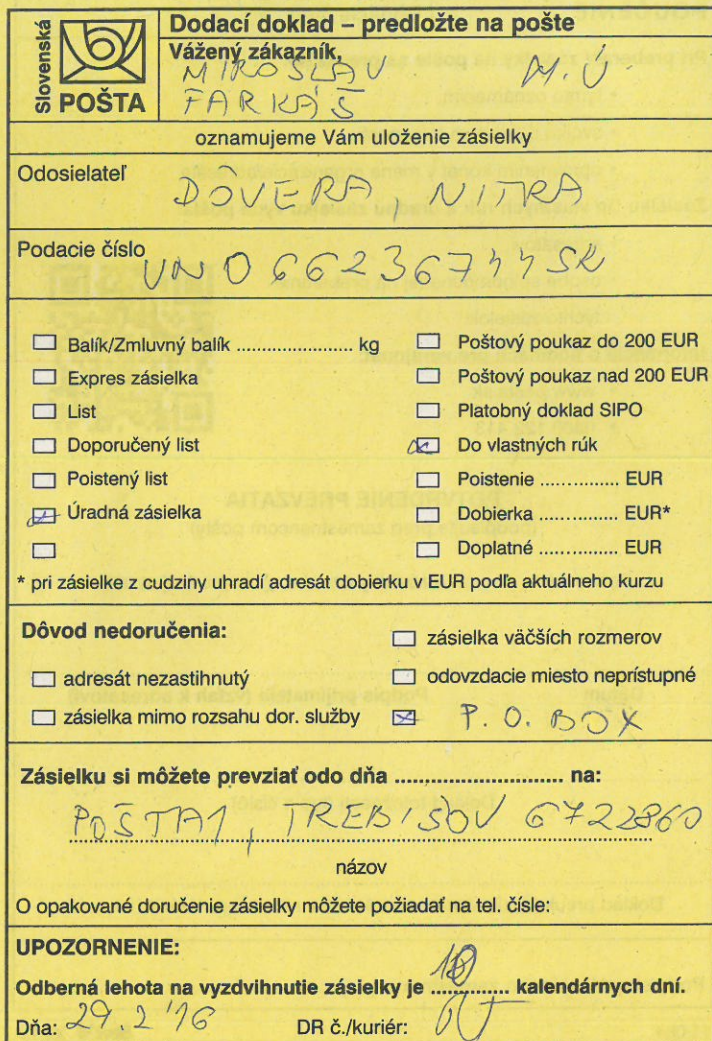 Slovenská
POŠTA
Dodací doklad – predložte na pošte
Vážený zákazník,
MIROSLAV M.Ú.
FARKAŠ
oznamujeme Vám uloženie zásielky
Odosielateľ
DOVERA, NITRA
Podacie číslo
UN066236744SK
Balík/Zmluvný balík ...................... kg
Expres zásielka
List
Doporučený list
Poistený list
Úradná zásielka
Poštový poukaz do 200 EUR
Poštový poukaz nad 200 EUR
Platobný doklad SIPO
Do vlastných rúk
Poistenie .............. EUR
Dobierka .............. EUR*
Doplatné .............. EUR
* pri zásielke z cudziny uhradí adresát dobierku v EUR podľa aktuálneho kurzu
Dôvod nedoručenia:
adresát nezastihnutý
zásielka mimo rozsahu dor. služby
zásielka väčších rozmerov
odovzdacie miesto neprístupné
P.O.BOX
Zásielku si môžete prevziať odo dňa ......................... na:
POŠTA1, TREBIŠOV 6722860
názov
O opakované doručenie zásielky môžete požiadať na tel. čísle:
UPOZORNENIE:
Odberná lehota na vyzdvihnutie zásielky je 18 kalendárnych dní.
Dňa: 29.2'16 DR č./kuriér: